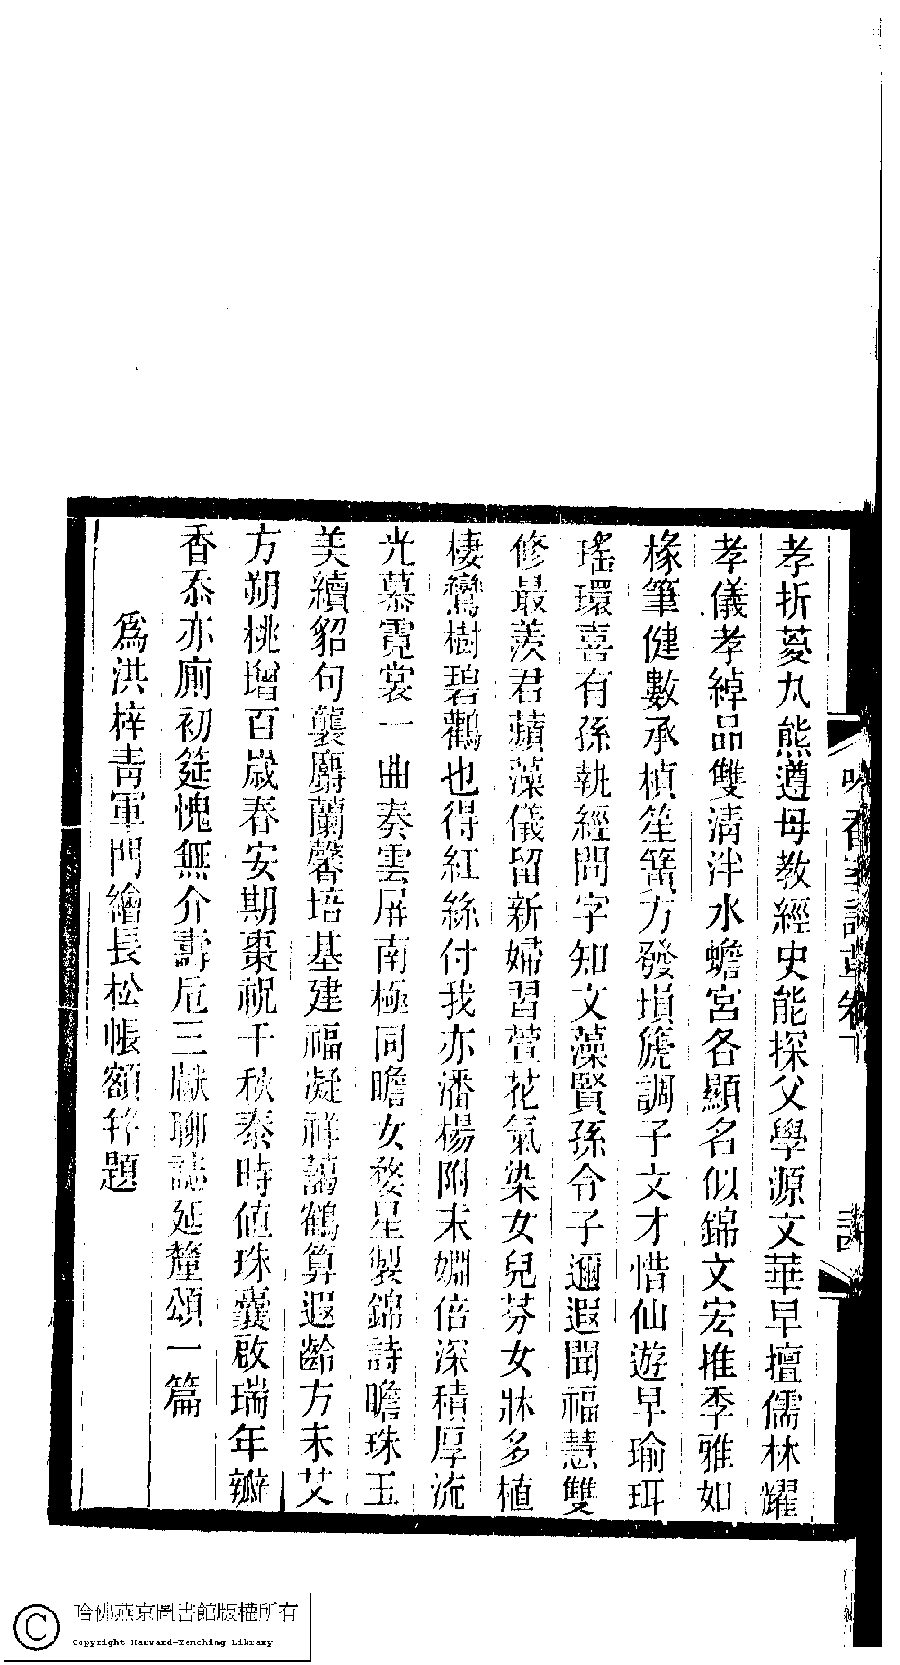 孝折葼丸熊遵母教經史能探父學源文華早擅儒林耀
孝儀孝綽品雙清泮水蟾宮各顯名似錦文宏推季雅如
椽筆健數承楨笙簧方發塤箎調子文才惜仙遊早瑜珥
瑤環喜有孫執經問字知文藻賢孫令子邇遐聞福慧雙
修最羨君蘋藻儀留新婦習萱花氣染女兒芬女牀多植
棲鸞樹碧鸛也得紅絲付我亦潘楊附末婣倍深積厚流
光慕霓裳一曲奏雲屏南極同瞻女婺星製錦詩瞻珠玉
美續貂句襲麝蘭馨培基建福凝祥藹鶴算遐齡方未艾
方朔桃增百歲春安期棗祝千秋泰時值珠囊啟瑞年瓣
香忝亦廁初筵愧無介壽卮三獻聊誌延釐頌一篇
為洪梓青軍門繪長松帳額并題
香 詩草卷下
詩
哈佛燕京圖書館版權所有
Copyright Harvard-Yenching Library